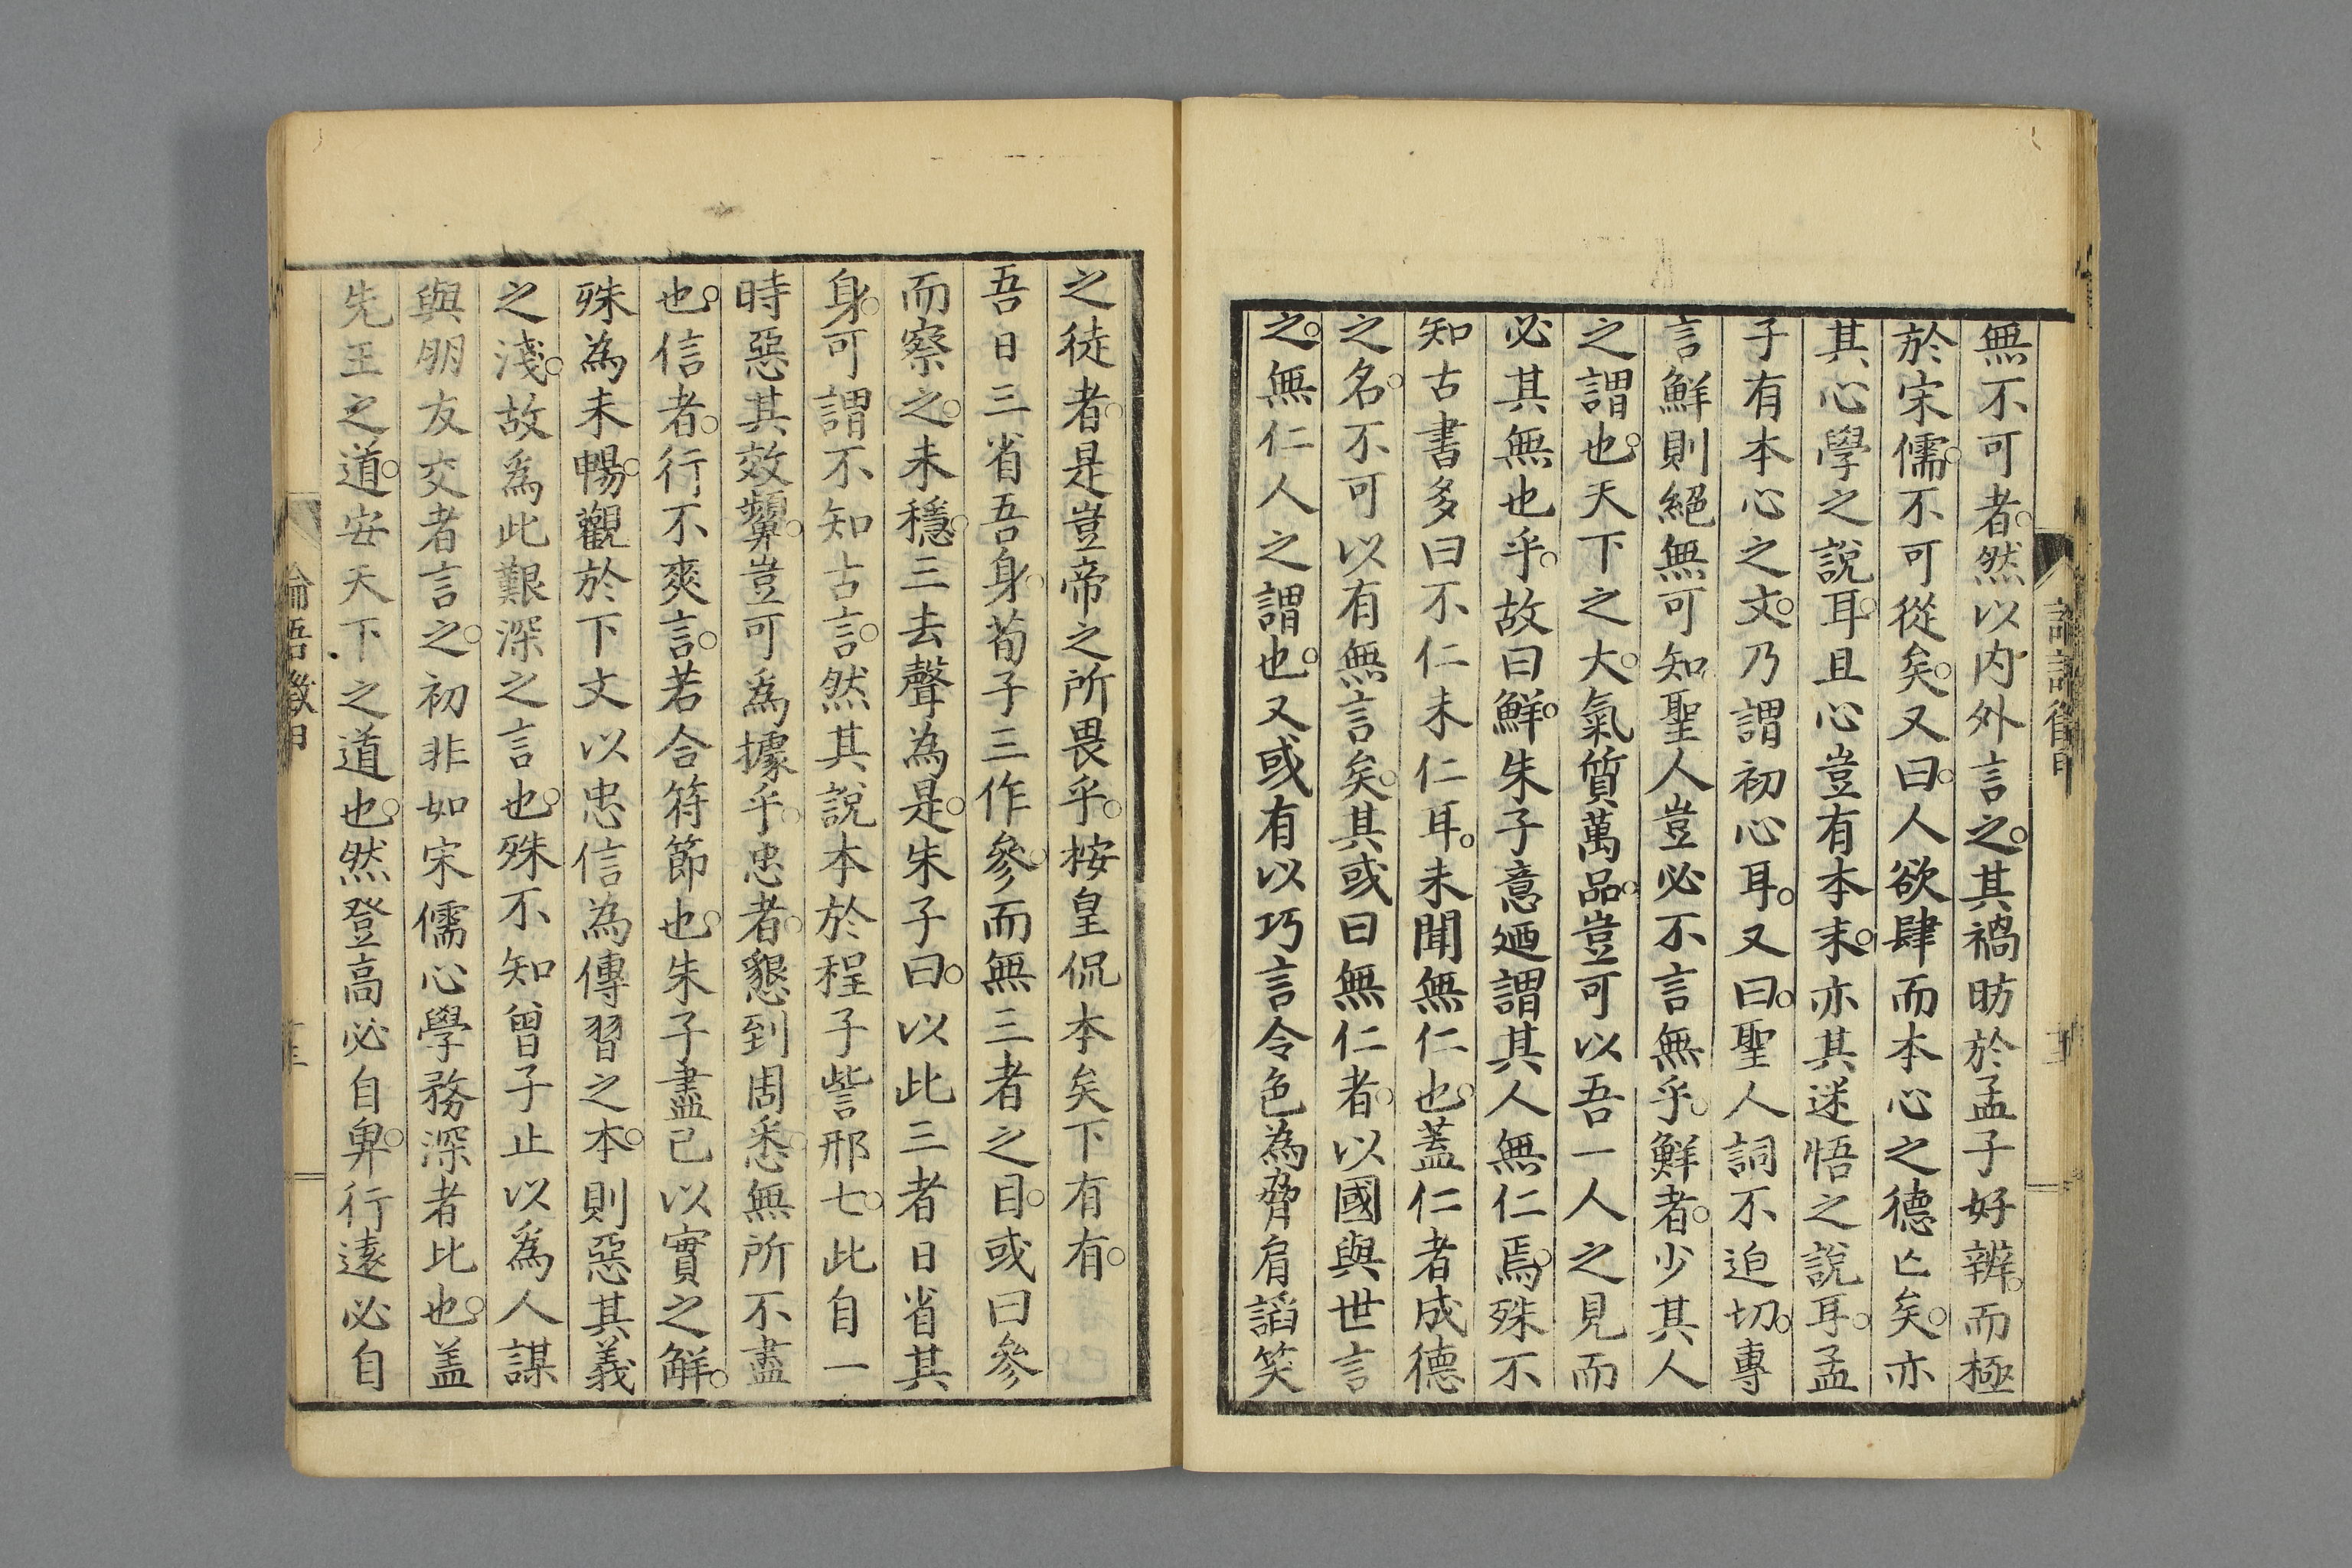 無不可者。然以内外言之。其禍昉於孟子好辨。而極
於宋儒。不可從矣。又曰。人欲肆而本心之德亡矣。亦
其心學之說耳。且心豈有本末。亦其迷悟之說耳。孟
子有本心之文。乃謂初心耳。又曰。聖人詞不迫切。專
言鮮則絕無可知聖人豈必不言無乎。鮮者。少其人
之謂也。天下之大。氣質萬品。豈可以吾一人之見而
必其無也乎。故曰鮮。朱子意廼謂其人無仁焉。殊不
知古書多曰不仁未仁耳。未聞無仁也。蓋仁者成德
之名。不可以有無言矣。其或曰無仁者。以國與世言
之。無仁人之謂也。又或有以巧言令色為脅肩謟笑
之徒者。是豈帝之所畏乎。按皇侃本矣下有有。
吾日三省吾身。荀子三作參。而無三者之目。或曰參
而察之。未穩。三去聲為是。朱子曰。以此三者日省其
身。可謂不知古言。然其說本於程子訾邢七。此自一
時惡其效顰。豈可為據乎。忠者。懇到周悉。無所不盡
也。信者。行不爽言。若合符節也。朱子盡己以實之解。
殊為未暢。觀於下文以忠信為傳習之本。則惡其義
之淺。故為此艱深之言也。殊不知曾子止以為人謀
與朋友交者言之。初非如宋儒心學務深者比也。盖
先王之道。安天下之道也。然登高必自卑。行遠必自
論語徵甲